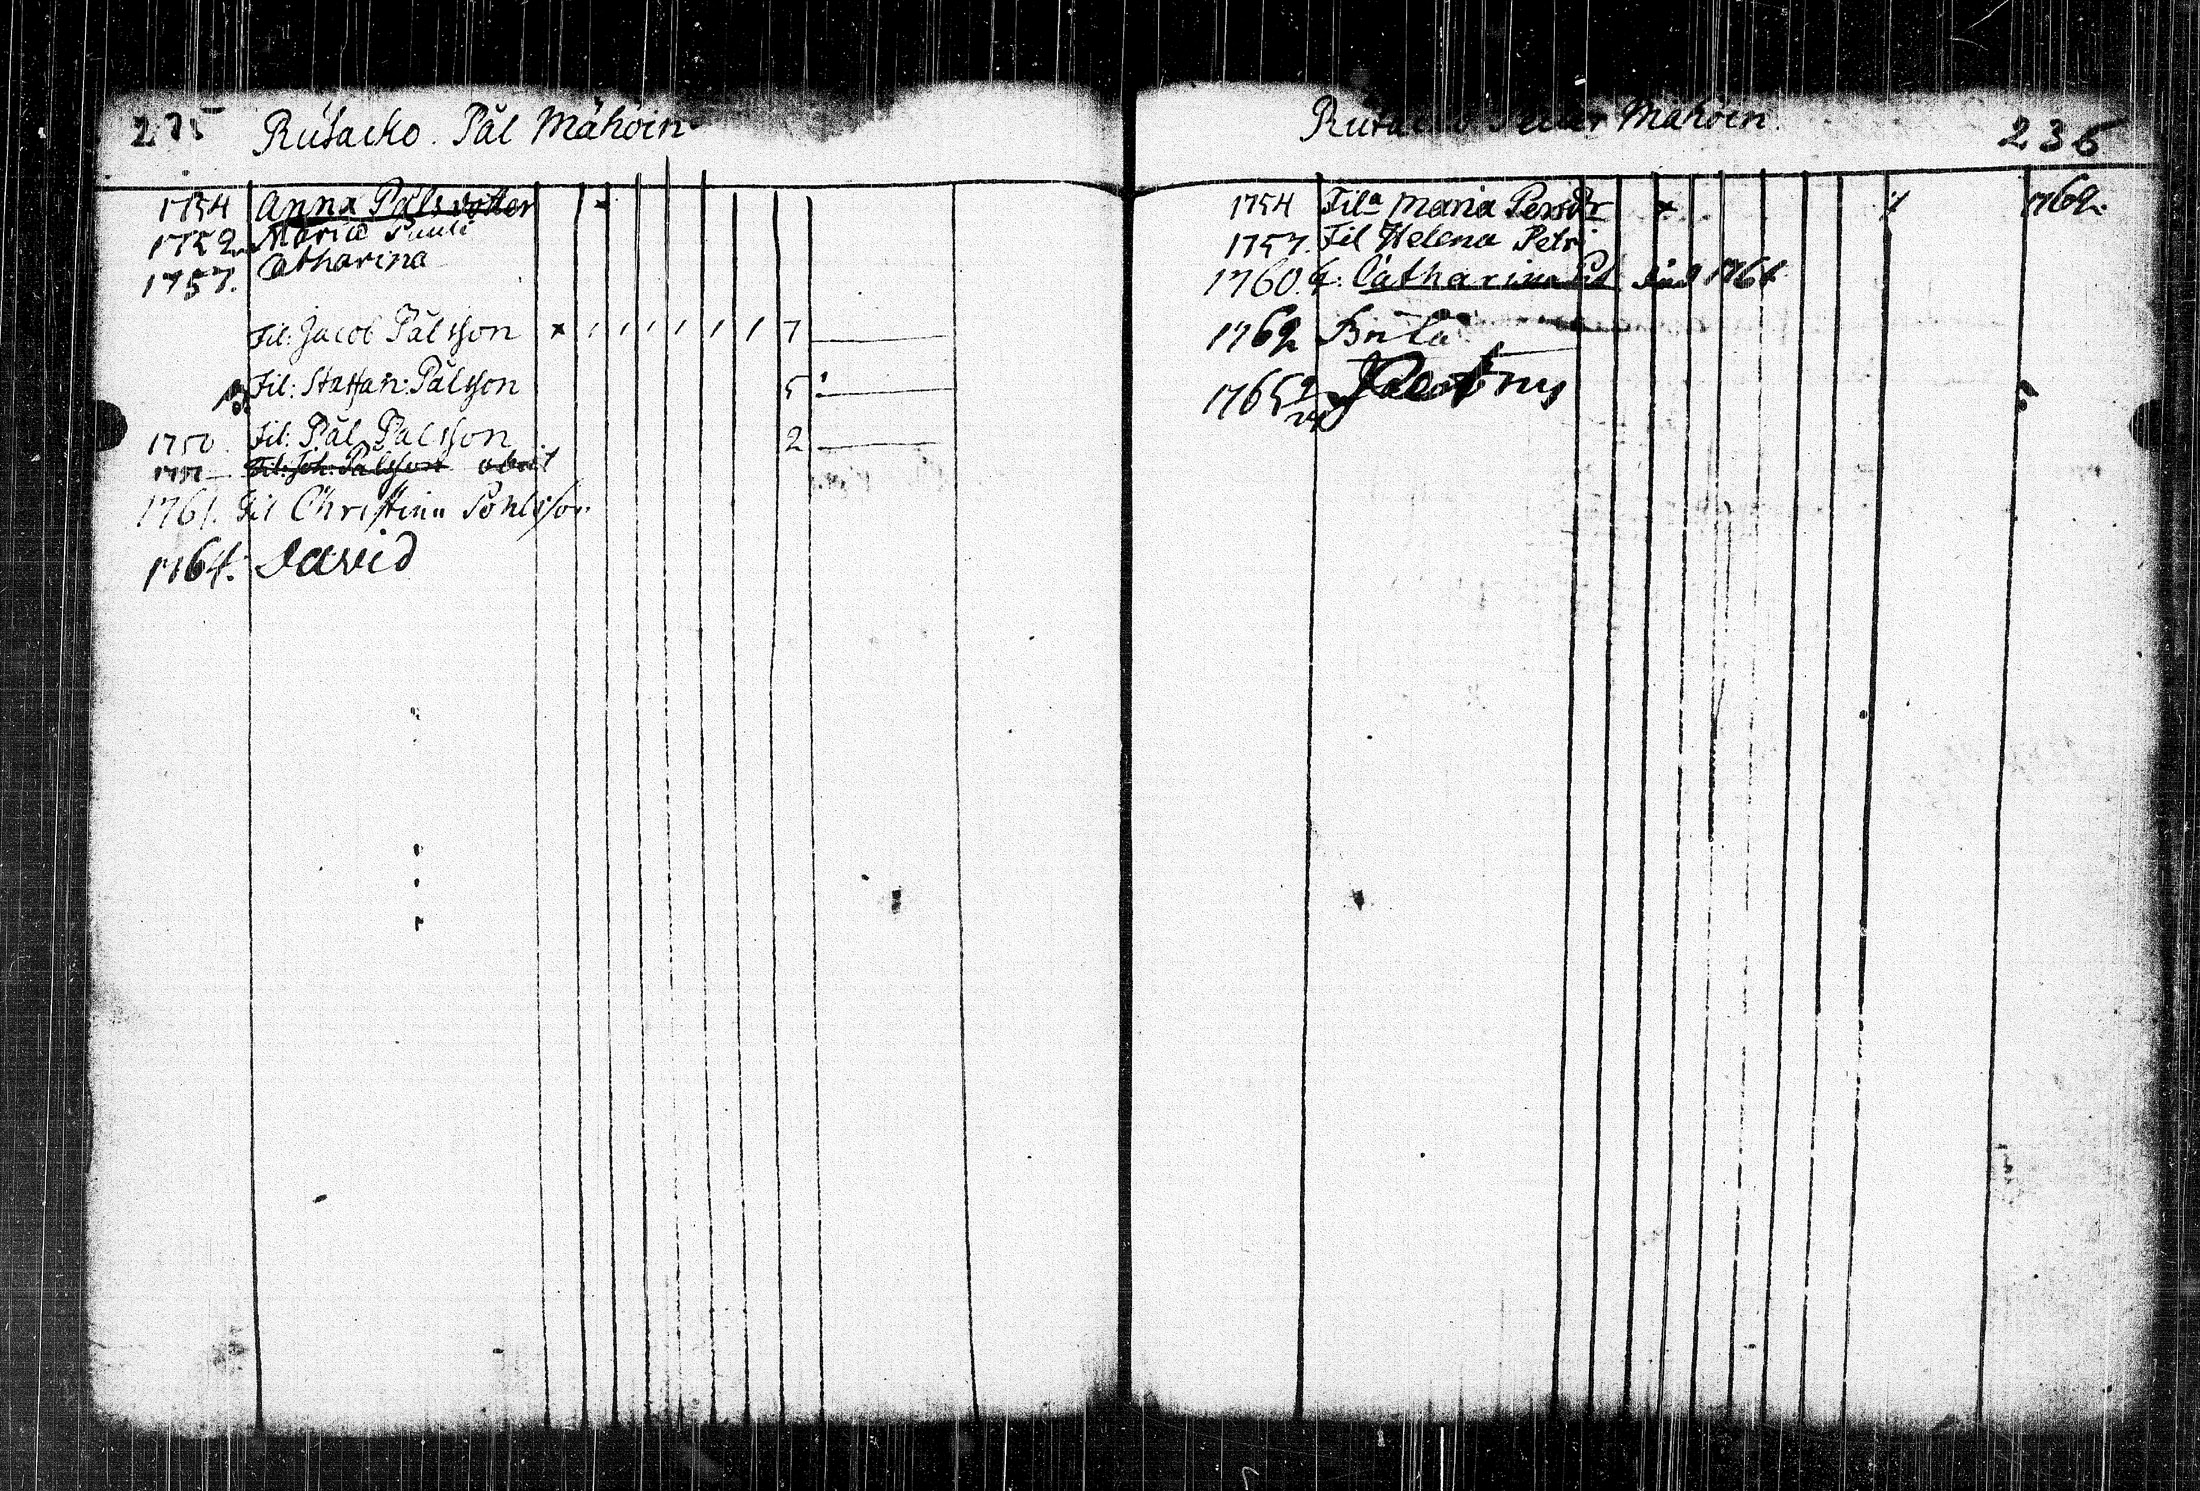 235 Rusacko. Pål Mähöin
1754 Anna Pålsdotter x
1752 Maria Pauli
1757. Catharina
Fil: Jacob Pålsson x 7
Fil: Staffan Pålsson 5
1750 Fil: Pål Pålsson 2
Fil: Joh: Pålsson obiit
1761. Fil Christina Pohls
1764. David
Mähöin. 236
1754 Fila Maria Persdr x 1762.
1757. Fil Helena Petri
1760. f. Catharina Pet 1764
1762 Brita
1765